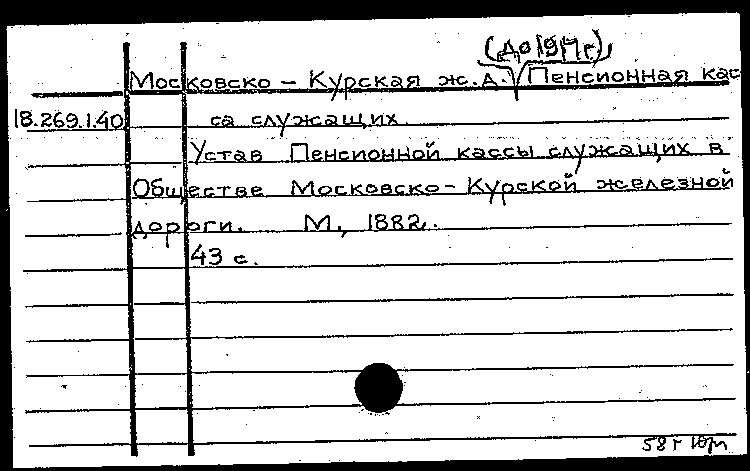 (до 1917 г.),
Московско - Курская ж.д. Пенсионная кас
18.269.1.40 са служащих.
Устав Пенсионной кассы служащих в
Обществе Московско-Курской железной
дороги. М., 1882.
43 с.
58 г